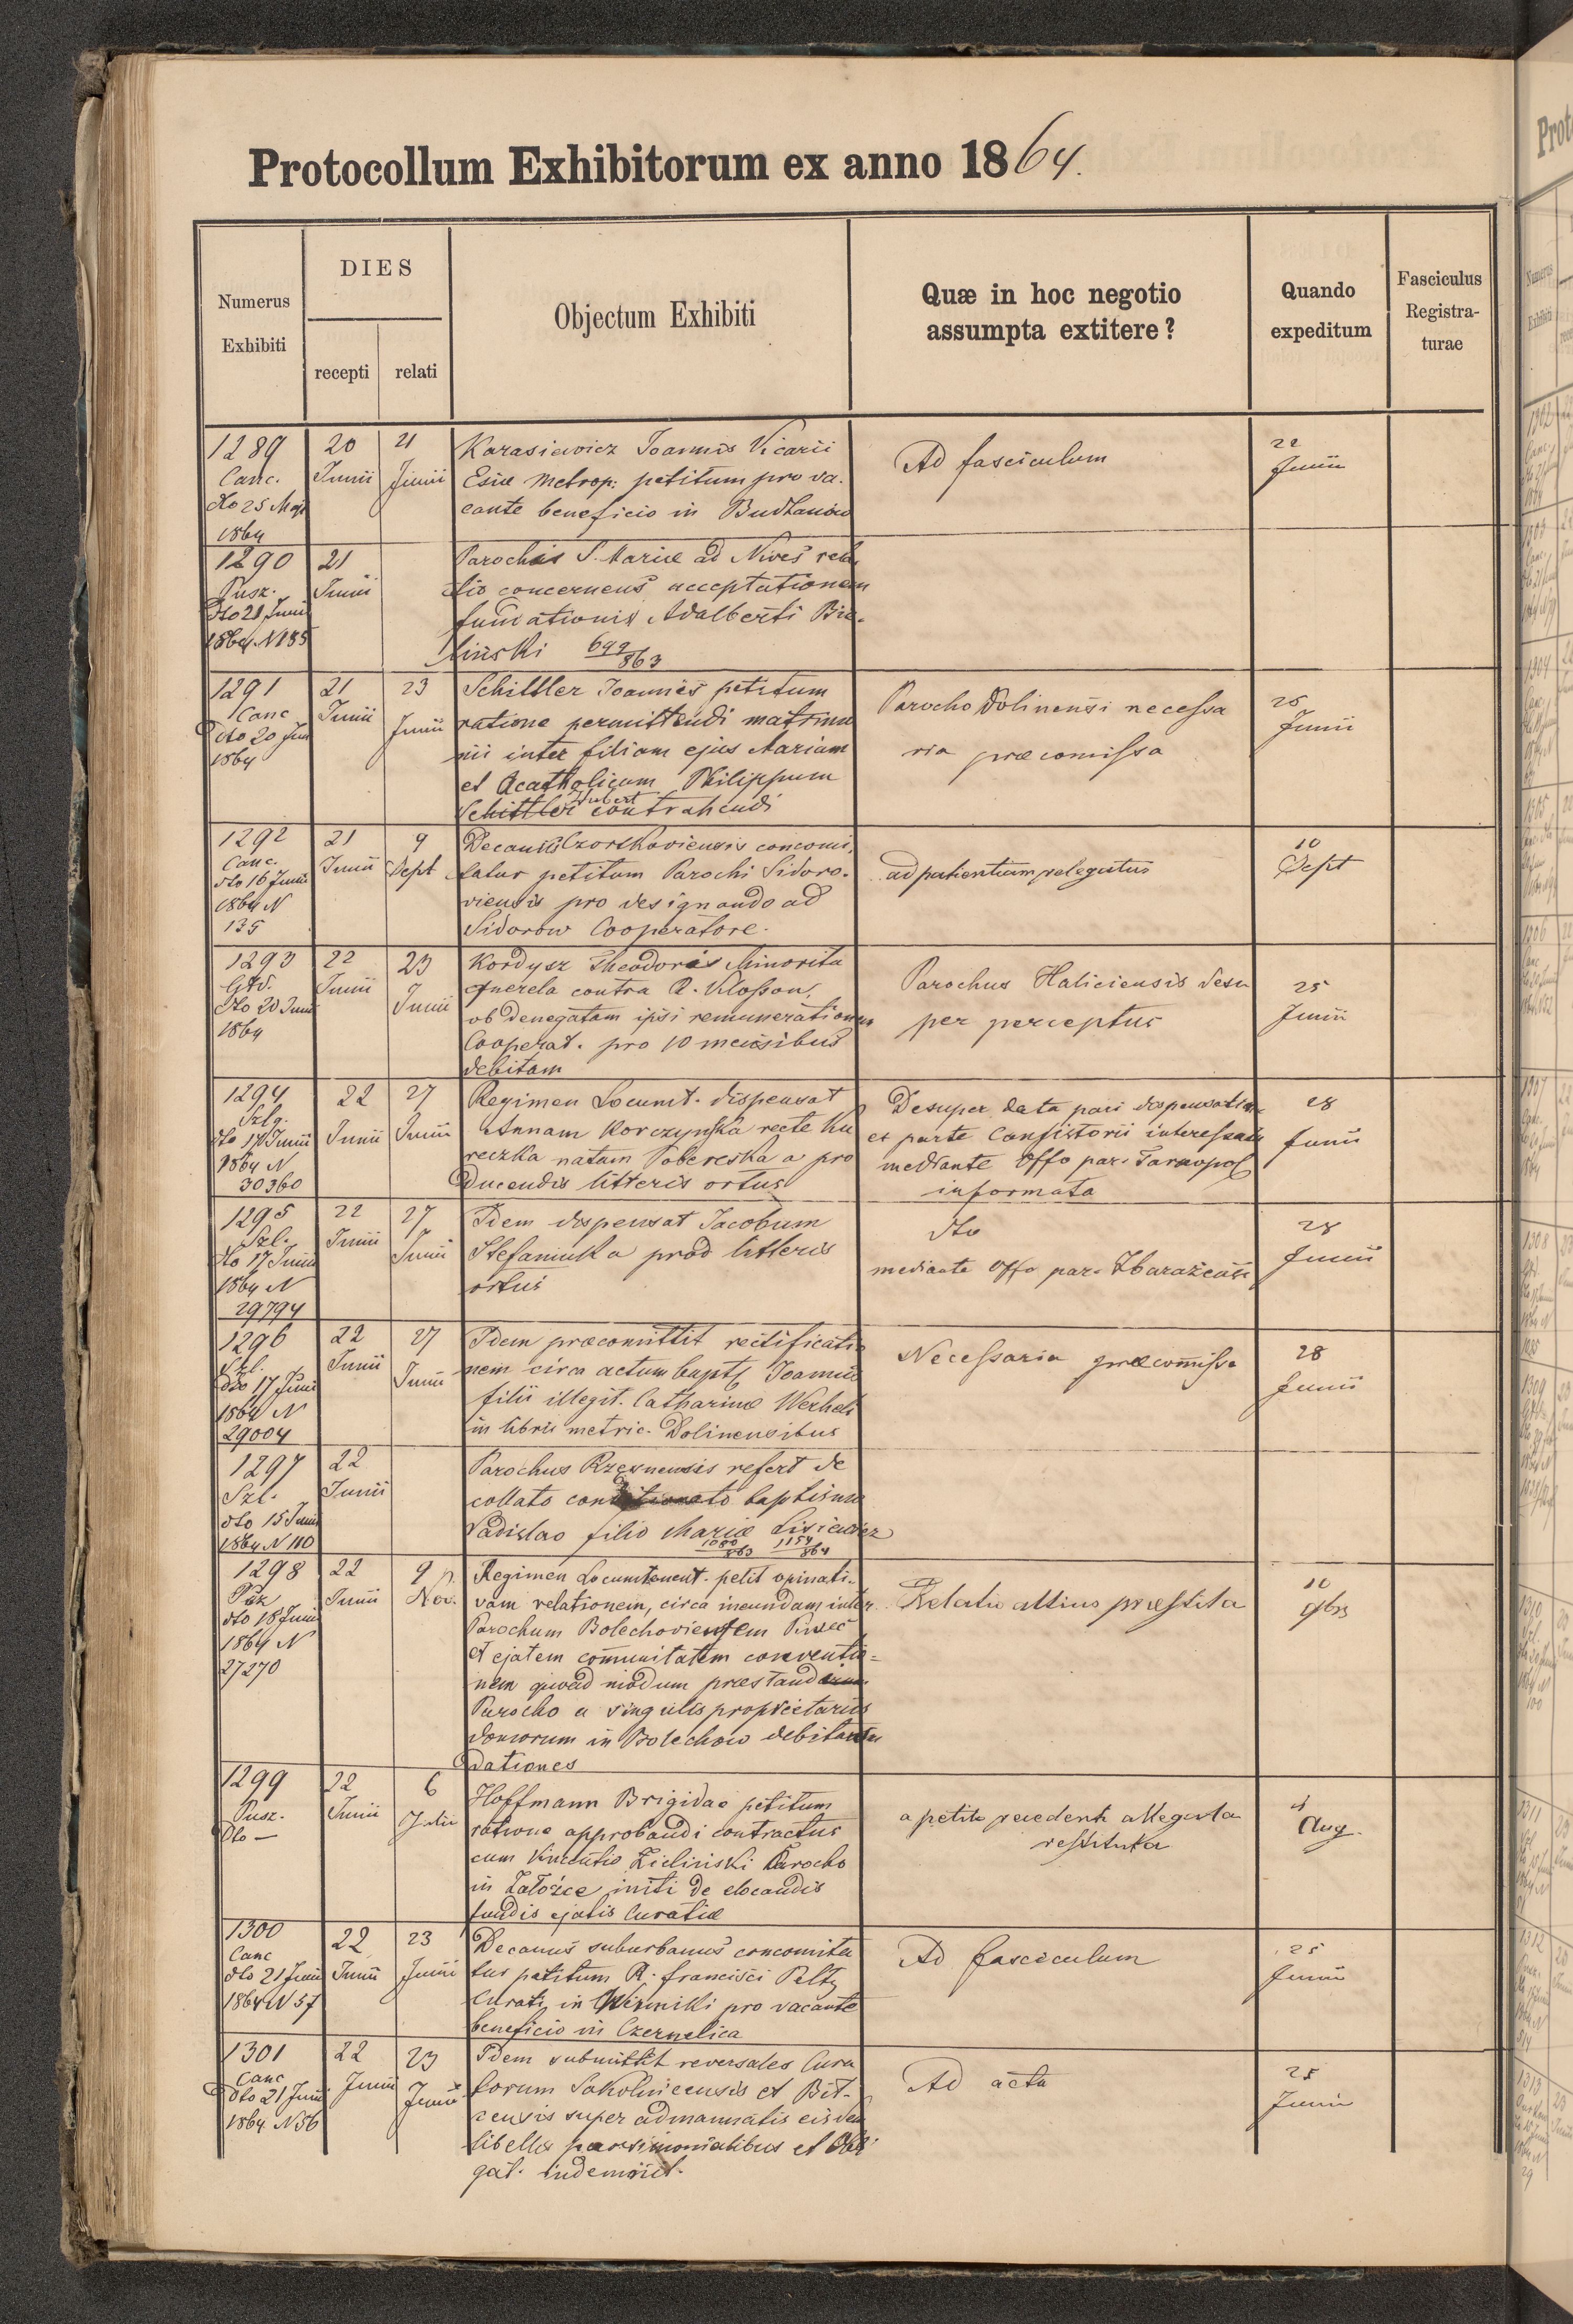 Protocollum Exhibitorum ex anno 1864.
Numerus Exhibiti
DIES
recepti
relati
Objectum Exhibiti
Quæ in hoc negotio
assumpta extitere?
Quando
expeditum
Fasciculus
Registra-
turae
1289
Canc.
dto 25 Maji
1864
20
Junii
21
Junii
Karasiewicz Joannis Vicarii
Esiæ Metrop: petitum pro va-
cante beneficio in Budzanów
Ad fasciculum
22
Junii
1290
Pusz.
dto 21 Junii
1864 N 185
21
Junii
Parochus S. Mariæ ad Nives rela
tio concernens acceptationem
fundationis Adalberti Bie-
liński 692/863
1291
Canc
dto 20 Jun
1864
21
Junii
23
Junii
Schittler Joannes petitum
ratione permittendi matrimo
nii inter filiam ejus Mariam
et Acatholicum Philippum
Schittler contrahendi
Parocho Dolinensi necessa
ria præcomissa
25
Junii
1292
Canc.
dto 16 Junii
1864 N
135
21
Junii
9
Sept
Decanus Czortkoviensis concomi,
tatur petitum Parochi Sidoro-
viensis pro designando ad
Sidorow Cooperatore.
ad patientiam relegatus
10
Sept
1293
Gtd.
dto 20 Junii
1864
22
Junii
23
Junii
Kordysz Theodoris Minorita
querela contra R. Klosson,
ob denegatam ipsi remunerationem
Cooperat. pro 10 mensibus
debitam
Parochus Haliciensis desu
per perceptus
25
Junii
1294
Szlg.
dto 17 Junii
1864 N
30360
22
Junii
27
Junii
Regimen Locumt. dispensat
Annam Korczyńska recte Ku
reczka natam Sobereska a pro
ducendis litteris ortus
Desuper data pari dispensatione
ex parte Consistorii interessata
mediante Offo par. Tarnopol
informata
28
Junii
1295
Szl.
dto 17 Junii
1864 N
29794
22
Junii
27
Junii
Idem dispensat Jacobum
Stefaniuka prod litteris
ortus
dto
mediante Offo par. Zbarażensi
28
Junii
1296
Szl.
dto 17 Juni
1864 N
29004
22
Junii
27
Junii
Idem præcomittit rectificatio
nem circa actum bapt. Joannis
filii illegit. Catharinæ Werhets
in libris metric. Dolinensibus
Necessaria præcomissa
28
Junii
1297
Szl.
dto 15 Junii
1864 N 110
22
Junii
Parochus Rzęsnensis refert de
collato conditionato baptismo
Vadislao filio Mariæ Lisiewicz
1080/863 1154/864
1298
Psk
dto 18 Junii
1864 N
27270
22
Junii
9
Nov.
Regimen Locumtenent. petit opinati-
vam relationem, circa ineundam inter
Parochum Bolechoviensem Piwec
et ejatem comunitatem conventio=
nem quoad modum præstand
Parocho a singulis proprietariis
domorum in Bolechow debitarum
dationes
Relatio altius præstita
10
9bris
1299
Pusz.
dto —
22
Junii
6
Julii
Hoffmann Brigidae petitum
ratione approbandi contractus
cum Vincentio Zieliński Parocho
in Załoźce initi de elocandis
fundis ejatis Curatiæ
a petito recedenti allegata
restituta
4
Aug.
1300
Canc
dto 21 Junii
1864 N 57
22
Junii
23
Junii
Decanus suburbanus concomita
tur petitum R. Francisci Peltz
Curati in Winniki pro vacante
beneficio in Czernelica
Ad fasciculum
25
Junii
1301
Canc
dto 21 Junii
1864 N 56
22
Junii
23
Junii
Idem submittit reversales Cura
torum Sokolnicensis et Bił-
censis super admannatis eisdem
libellis parsimonialibus et Obli
gat. indemnit.
Ad acta
25
Junii